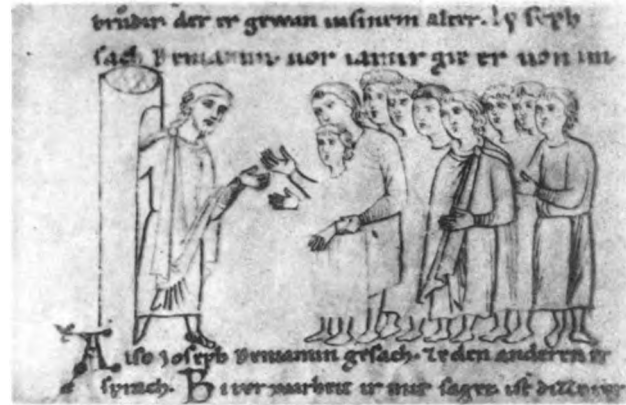 brůdir der er gewan insinem alter. Joseph
sach Beniamin. uor iamir gie er uon im
Also Joseph Beniamin gesach. Ze den anderen er
sprach. Bi iwer warheit ir mir saget. ist